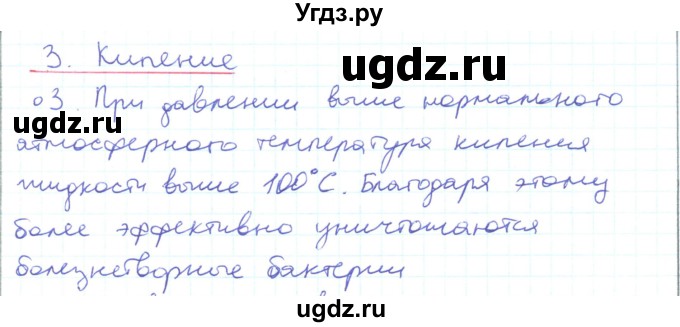 Угдз.ру
3. Кипение
ugdz.ru
03. При давлении выше нормального
ugdz.ru
атмосферного температура кипения
жидкости выше 100°С. Благодаря этому
более эффективно уничтожаются
болезнетворные бактерии
ugdz.ru